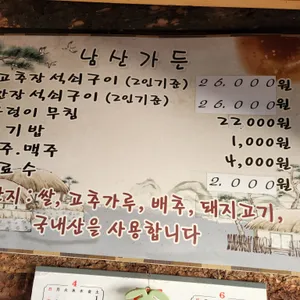 남산가든
고추장 석쇠구이 (2인기준) 26,000원
간장석쇠구이 (2인기준) 26,000원
우렁이 무침 22,000원
공기밥 1,000원
소주.맥주 4,000원
음료수 2,000원
쌀, 고추가루, 배추, 돼지고기,
국내산을 사용합니다
4
6